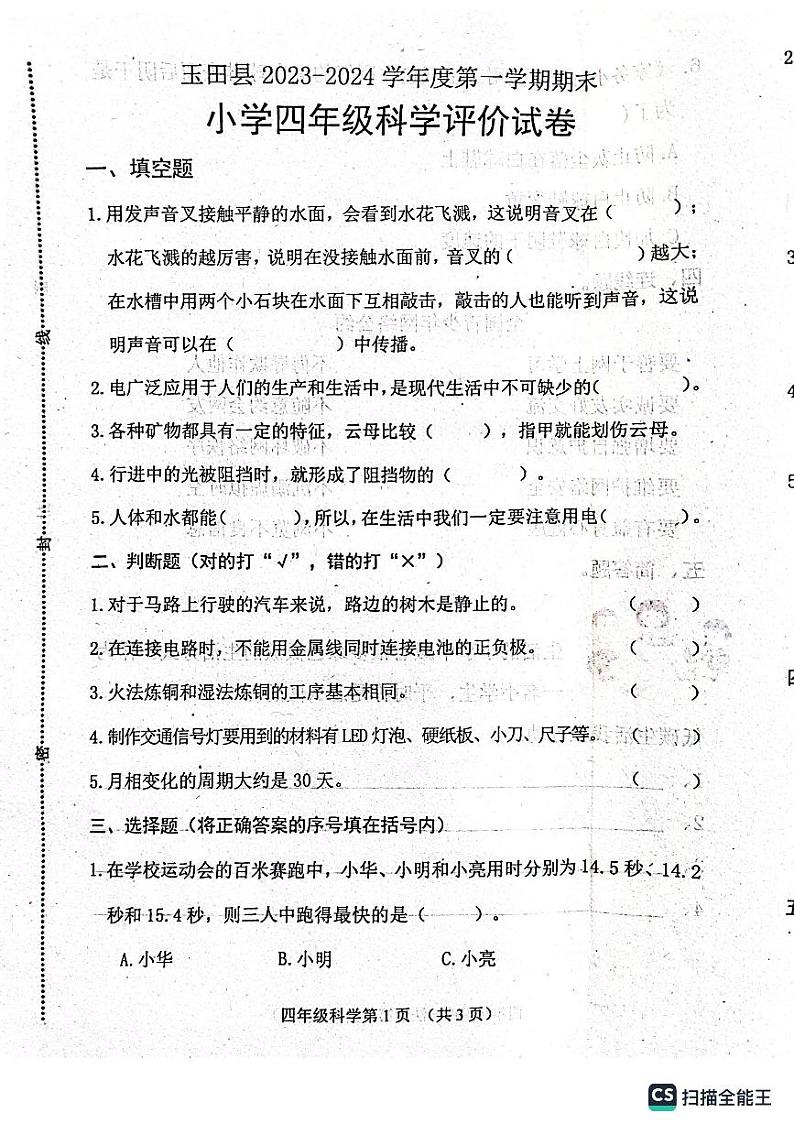 玉田县 2023-2024 学年度第一学期期末
小学四年级科学评价试卷
一、填空题
1. 用发声音叉接触平静的水面，会看到水花飞溅，这说明音叉在（　　）；
水花飞溅的越厉害，说明在没接触水面前，音叉的（　　）越大；
在水槽中用两个小石块在水面下互相敲击，敲击的人也能听到声音，这说
明声音可以在（　　）中传播。
2. 电广泛应用于人们的生产和生活中，是现代生活中不可缺少的（　　）。
3. 各种矿物都具有一定的特征，云母比较（　　），指甲就能划伤云母。
4. 行进中的光被阻挡时，就形成了阻挡物的（　　）。
5. 人体和水都能（　　），所以，在生活中我们一定要注意用电（　　）。
二、判断题（对的打“√”，错的打“×”）
1. 对于马路上行驶的汽车来说，路边的树木是静止的。（　　）
2. 在连接电路时，不能用金属线同时连接电池的正负极。（　　）
3. 火法炼铜和湿法炼铜的工序基本相同。（　　）
4. 制作交通信号灯要用到的材料有 LED 灯泡、硬纸板、小刀、尺子等。（　　）
5. 月相变化的周期大约是 30 天。（　　）
三、选择题（将正确答案的序号填在括号内）
1. 在学校运动会的百米赛跑中，小华、小明和小亮用时分别为 14.5 秒、14.2
秒和 15.4 秒，则三人中跑得最快的是（　　）。
A. 小华　B. 小明　C. 小亮
四年级科学第 1 页 （共 3 页）
线
封
密
CS 扫描全能王